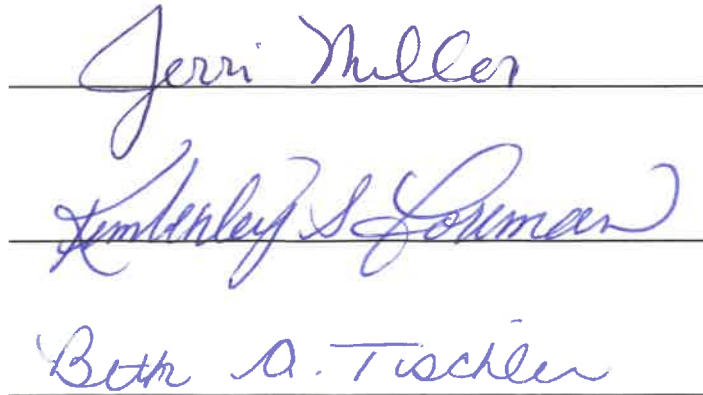 Jerri Miller
Kimberley S Loreman
Beth A. Tischler